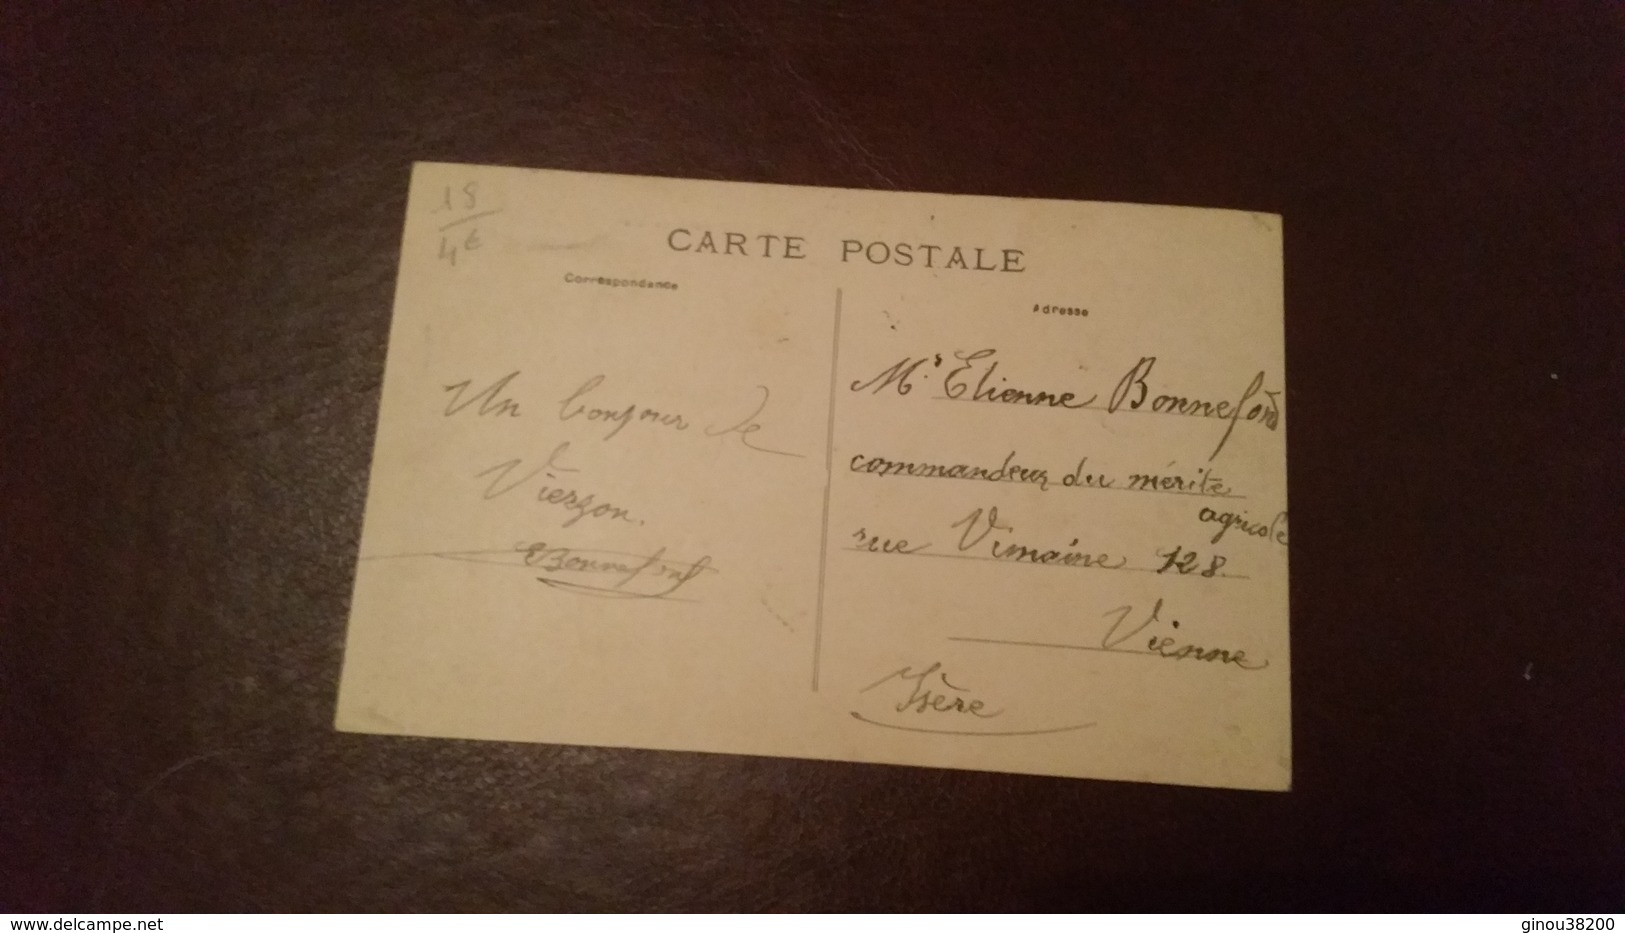 18
4€
CARTE POSTALE
Correspondance
Adresse
Un bonjour de
Vierzon.
EBonnefond
Mr. Etienne Bonnefond
commandeur du mérite
agricole
rue Vimaine 128.
Vienne
Isère
www.delcampe.net
ginou38200